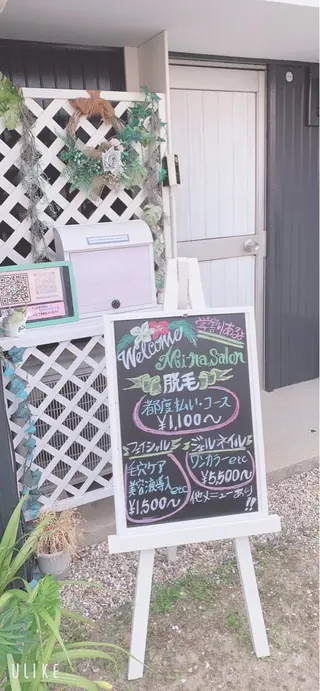 学割りあります
Welcome
Mei·na.Salon
脱毛
都度払い・コース
¥1,100〜
フェイシャル
毛穴ケア
美容液導入etc
¥1,500〜
ジェルネイル
ワンカラーetc
¥5,500〜
他メニューあり!!
ULIKE